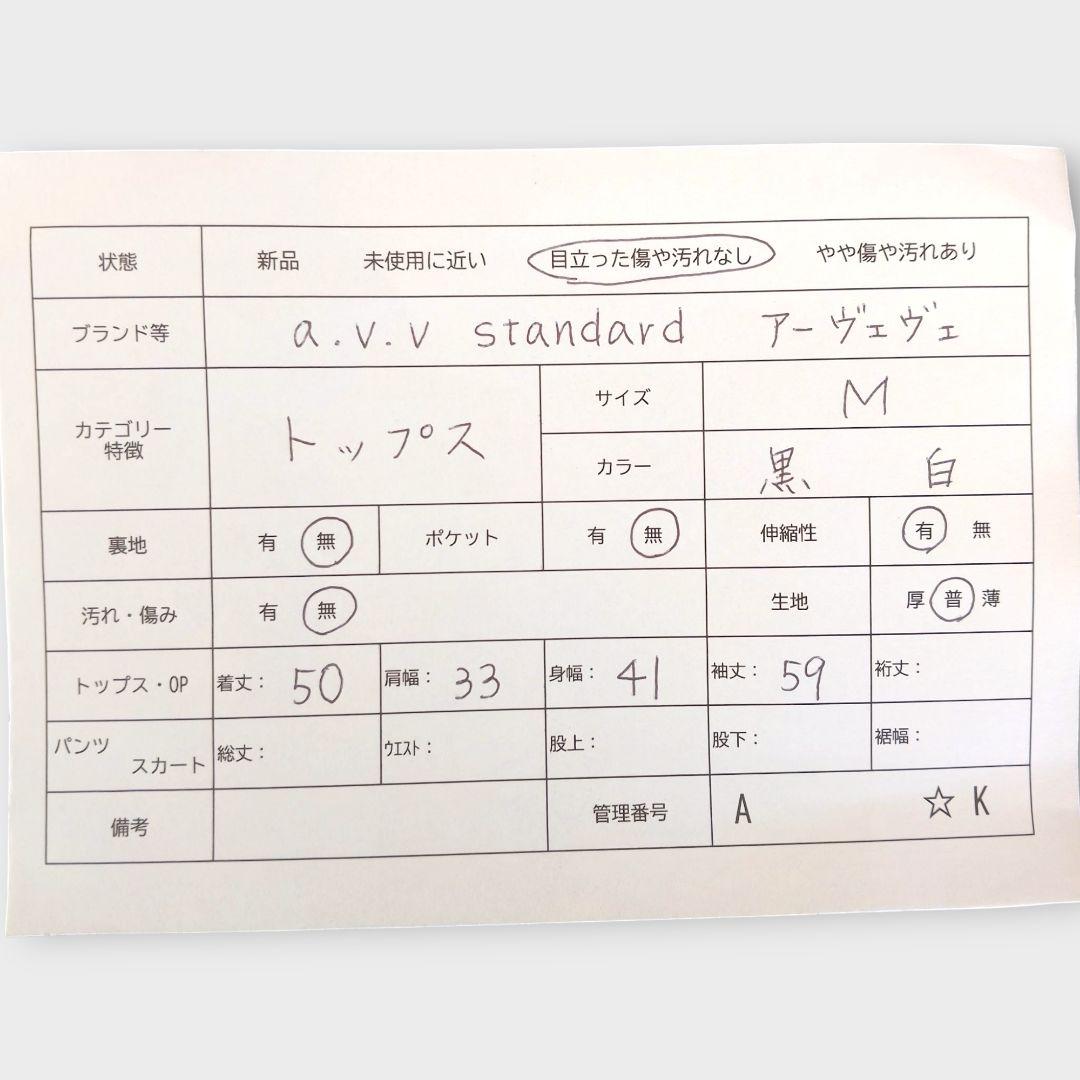 状態 新品 未使用に近い 目立った傷や汚れなし やや傷や汚れあり
ブランド等 a.v.v standard アーヴェヴェ
カテゴリー
特徴
トップス
サイズ M
カラー 黒 白
裏地 有 無 ポケット 有 無 伸縮性 有 無
汚れ・傷み 有 無 生地 厚 普 薄
トップス・OP 着丈： 50 肩幅： 33 身幅： 41 袖丈： 59 裄丈：
パンツ
スカート
総丈： ｳｴｽﾄ： 股上： 股下： 裾幅：
備考 管理番号 A ☆ K